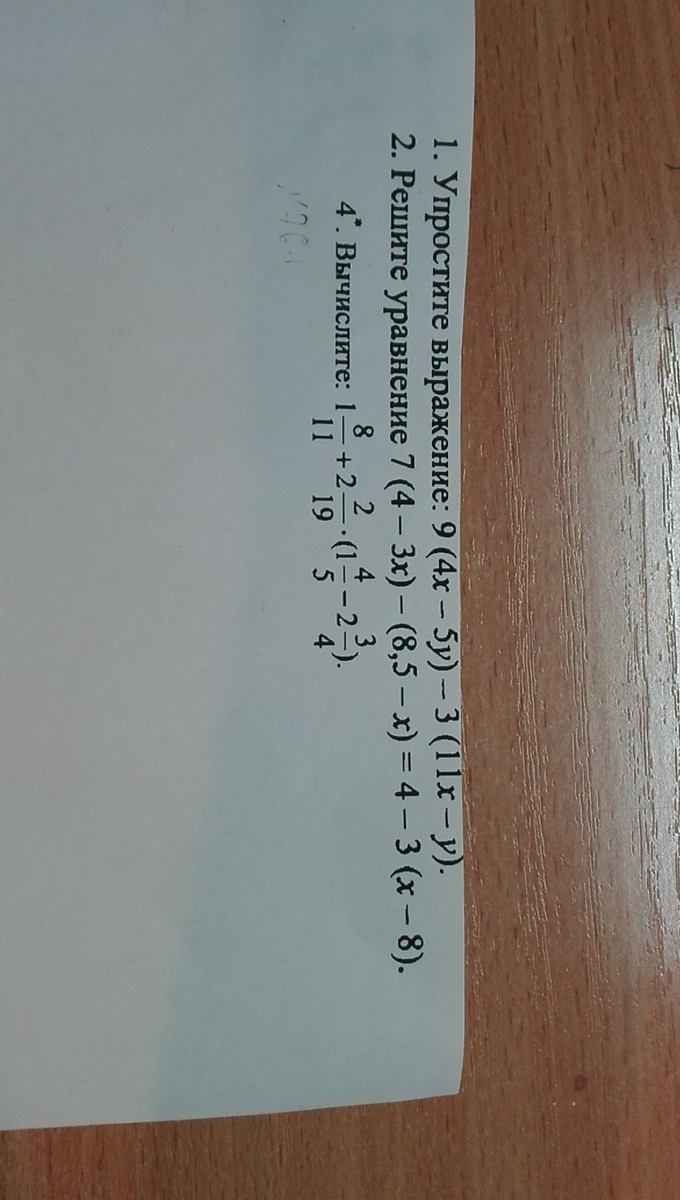 1. Упростите выражение: 9 (4x – 5y) – 3 (11x – y).
2. Решите уравнение 7 (4 – 3x) – (8,5 – x) = 4 – 3 (x – 8).
4*. Вычислите: 1 8/11 + 2 2/19 · (1 4/5 – 2 3/4).